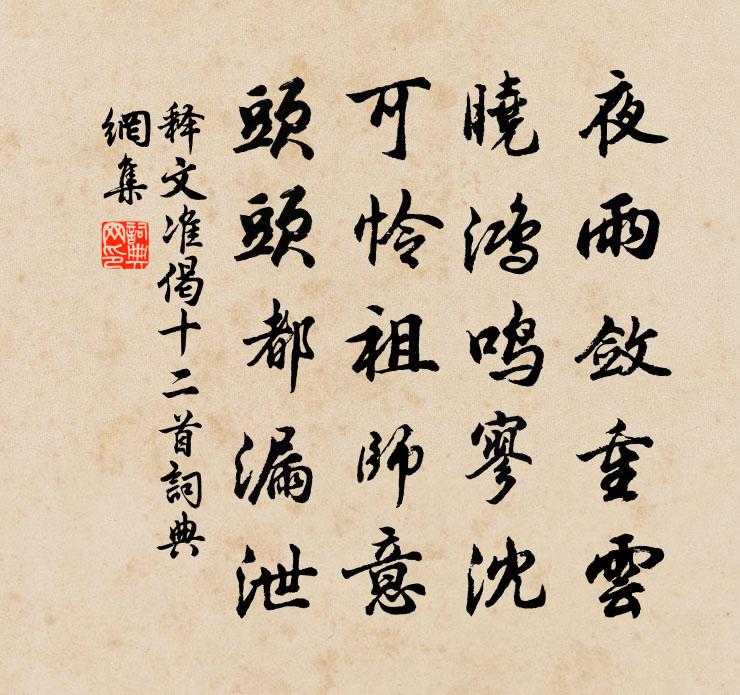 夜雨斂重雲
曉鴻鸣寥沈
可怜祖師意
頭頭都漏泄
释文准偈十二首詞典
網集
詞典网印